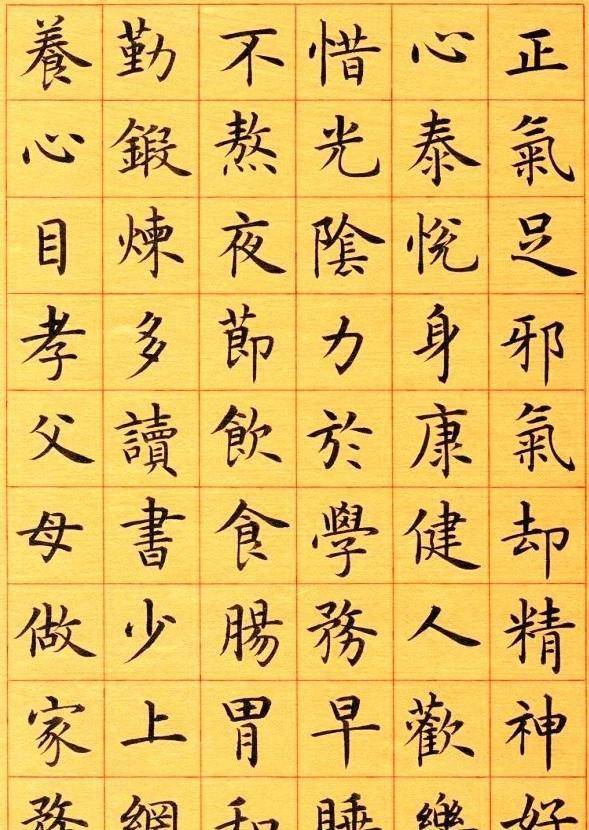 正氣足邪氣却精神好
心泰悅身康健人歡樂
惜光陰力於學務早睡
不熬夜節飲食腸胃和
勤鍛煉多讀書少上網
養心目孝父母做家務